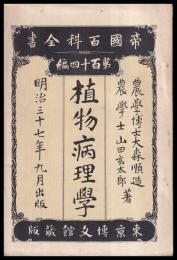 帝國百科全書
第百十四編
農學博士大森順造
農學士山田玄太郎
著
植物病理學
明治三十七年九月出版
東京博文館蔵版